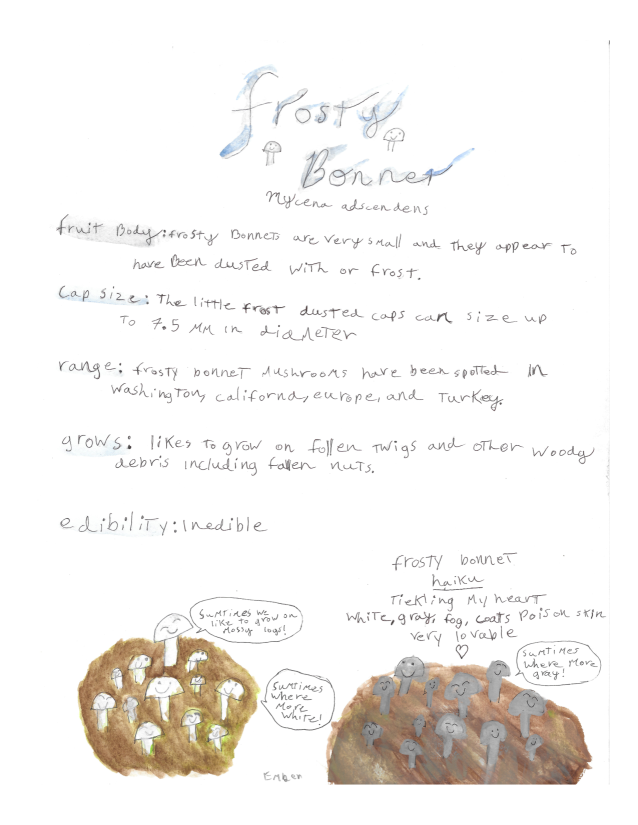 frosty
Bonnet
Mycena adscendens
fruit Body: frosty Bonnets are very small and they appear to
have Been dusted with or frost.
Cap size: The little frost dusted caps can size up
to 7.5 MM in diameter
range: frosty bonnet Mushrooms have been spotted in
Washington, californa, europe, and Turkey.
grows: likes to grow on fallen twigs and other woody
debris including fallen nuts.
edibility: inedible
frosty bonnet
haiku
Tickling My heart
White, gray, fog, coats Poison skin
very lovable
♡
Sumtimes we
like to grow on
Mossy logs!
Sumtimes
where
More
white!
Sumtimes
where More
gray!
Ember